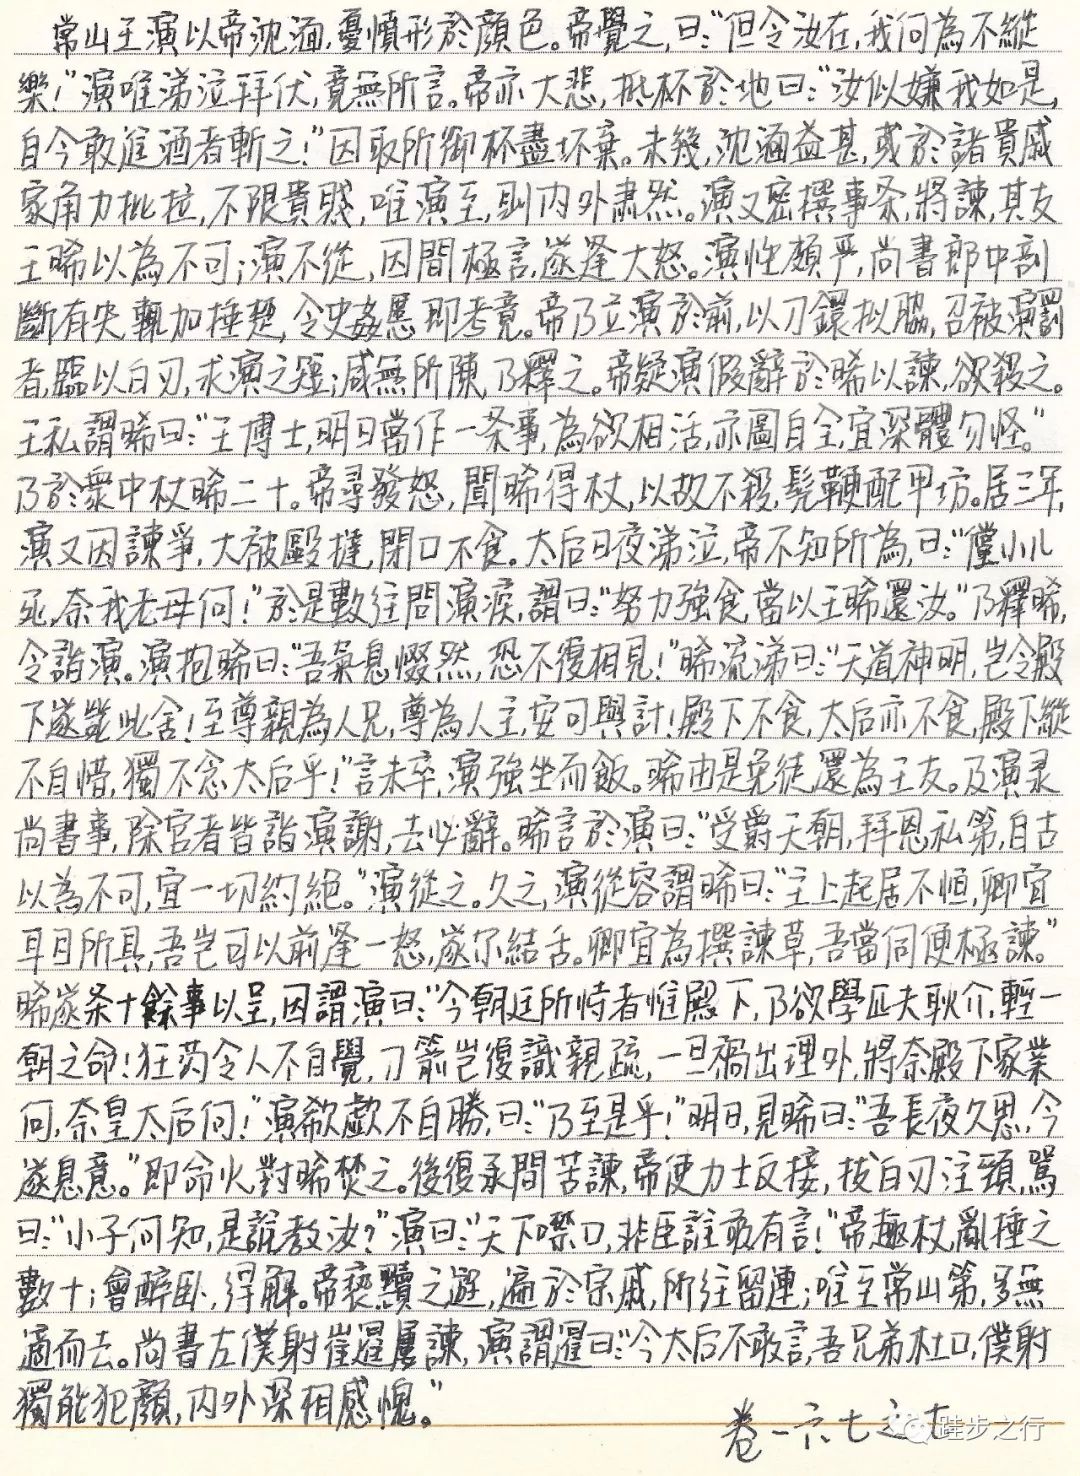 常山王演以帝沈湎,憂憤形於顔色。帝覺之,曰:"但令汝在,我何為不縱
樂!"演唯涕泣拜伏,竟無所言。帝亦大悲,抵杯於地曰:"汝似嫌我如是,
自今敢進酒者斬之!"因取所御杯盡坏棄。未幾,沈湎益甚,或於諸貴戚
家角力批拉,不限貴賤,唯演至,則内外肅然。演又密撰事条,將諫,其友
王晞以為不可;演不從,因間極言,遂逢大怒。演性頗严,尚書郎中剖
斷有失,輒加捶楚,令史姦慝即考竟。帝乃立演於前,以刀鐶拟脇,召被演罰
者,臨以白刃,求演之短;咸無所陳,乃釋之。帝疑演假辭於晞以諫,欲殺之。
王私謂晞曰:"王博士,明日當作一条事,為欲相活,亦圖自全,宜深體勿怪。"
乃於衆中杖晞二十。帝尋發怒,聞晞得杖,以故不殺,髡鞭配甲坊。居三年,
演又因諫爭,大被毆撻,閉口不食。太后日夜涕泣,帝不知所為,曰:"儻小儿
死,奈我老母何!"於是數往問演疾,謂曰:"努力強食,當以王晞還汝。"乃釋晞,
令詣演。演抱晞曰:"吾氣息惙然,恐不復相見!"晞流涕曰:"天道神明,岂令殿
下遂斃此舍!至尊親為人兄,尊為人主,安可與計!殿下不食,太后亦不食,殿下縱
不自惜,獨不念太后乎!"言未卒,演強坐而飯。晞由是免徒,還為王友。及演录
尚書事,除官者皆詣演謝,去必辭。晞言於演曰:"受爵天朝,拜恩私第,自古
以為不可,宜一切約絕。"演從之。久之,演從容謂晞曰:"主上起居不恒,卿宜
耳目所具,吾岂可以前逢一怒,遂尔結舌。卿宜為撰諫草,吾當伺便極諫。"
晞遂条十餘事以呈,因謂演曰:"今朝廷所恃者惟殿下,乃欲學匹夫耿介,輕一
朝之命!狂药令人不自覺,刀箭岂復識親疏,一旦禍出理外,將奈殿下家業
何,奈皇太后何!"演欷歔不自勝,曰:"乃至是乎!"明日,見晞曰:"吾長夜久思,今
遂息意。"即命火對晞焚之。後復承間苦諫,帝使力士反接,拔白刃注頸,罵
曰:"小子何知,是誰教汝?"演曰:"天下噤口,非臣誰敢有言!"帝趣杖,亂捶之
數十;會醉卧,得解。帝亵黷之遊,遍於宗戚,所往留連;唯至常山第,多無
適而去。尚書左僕射崔暹屢諫,演謂暹曰:"今太后不敢言,吾兄弟杜口,僕射
獨能犯顏,内外深相感愧。"
卷一六七之七
跬步之行